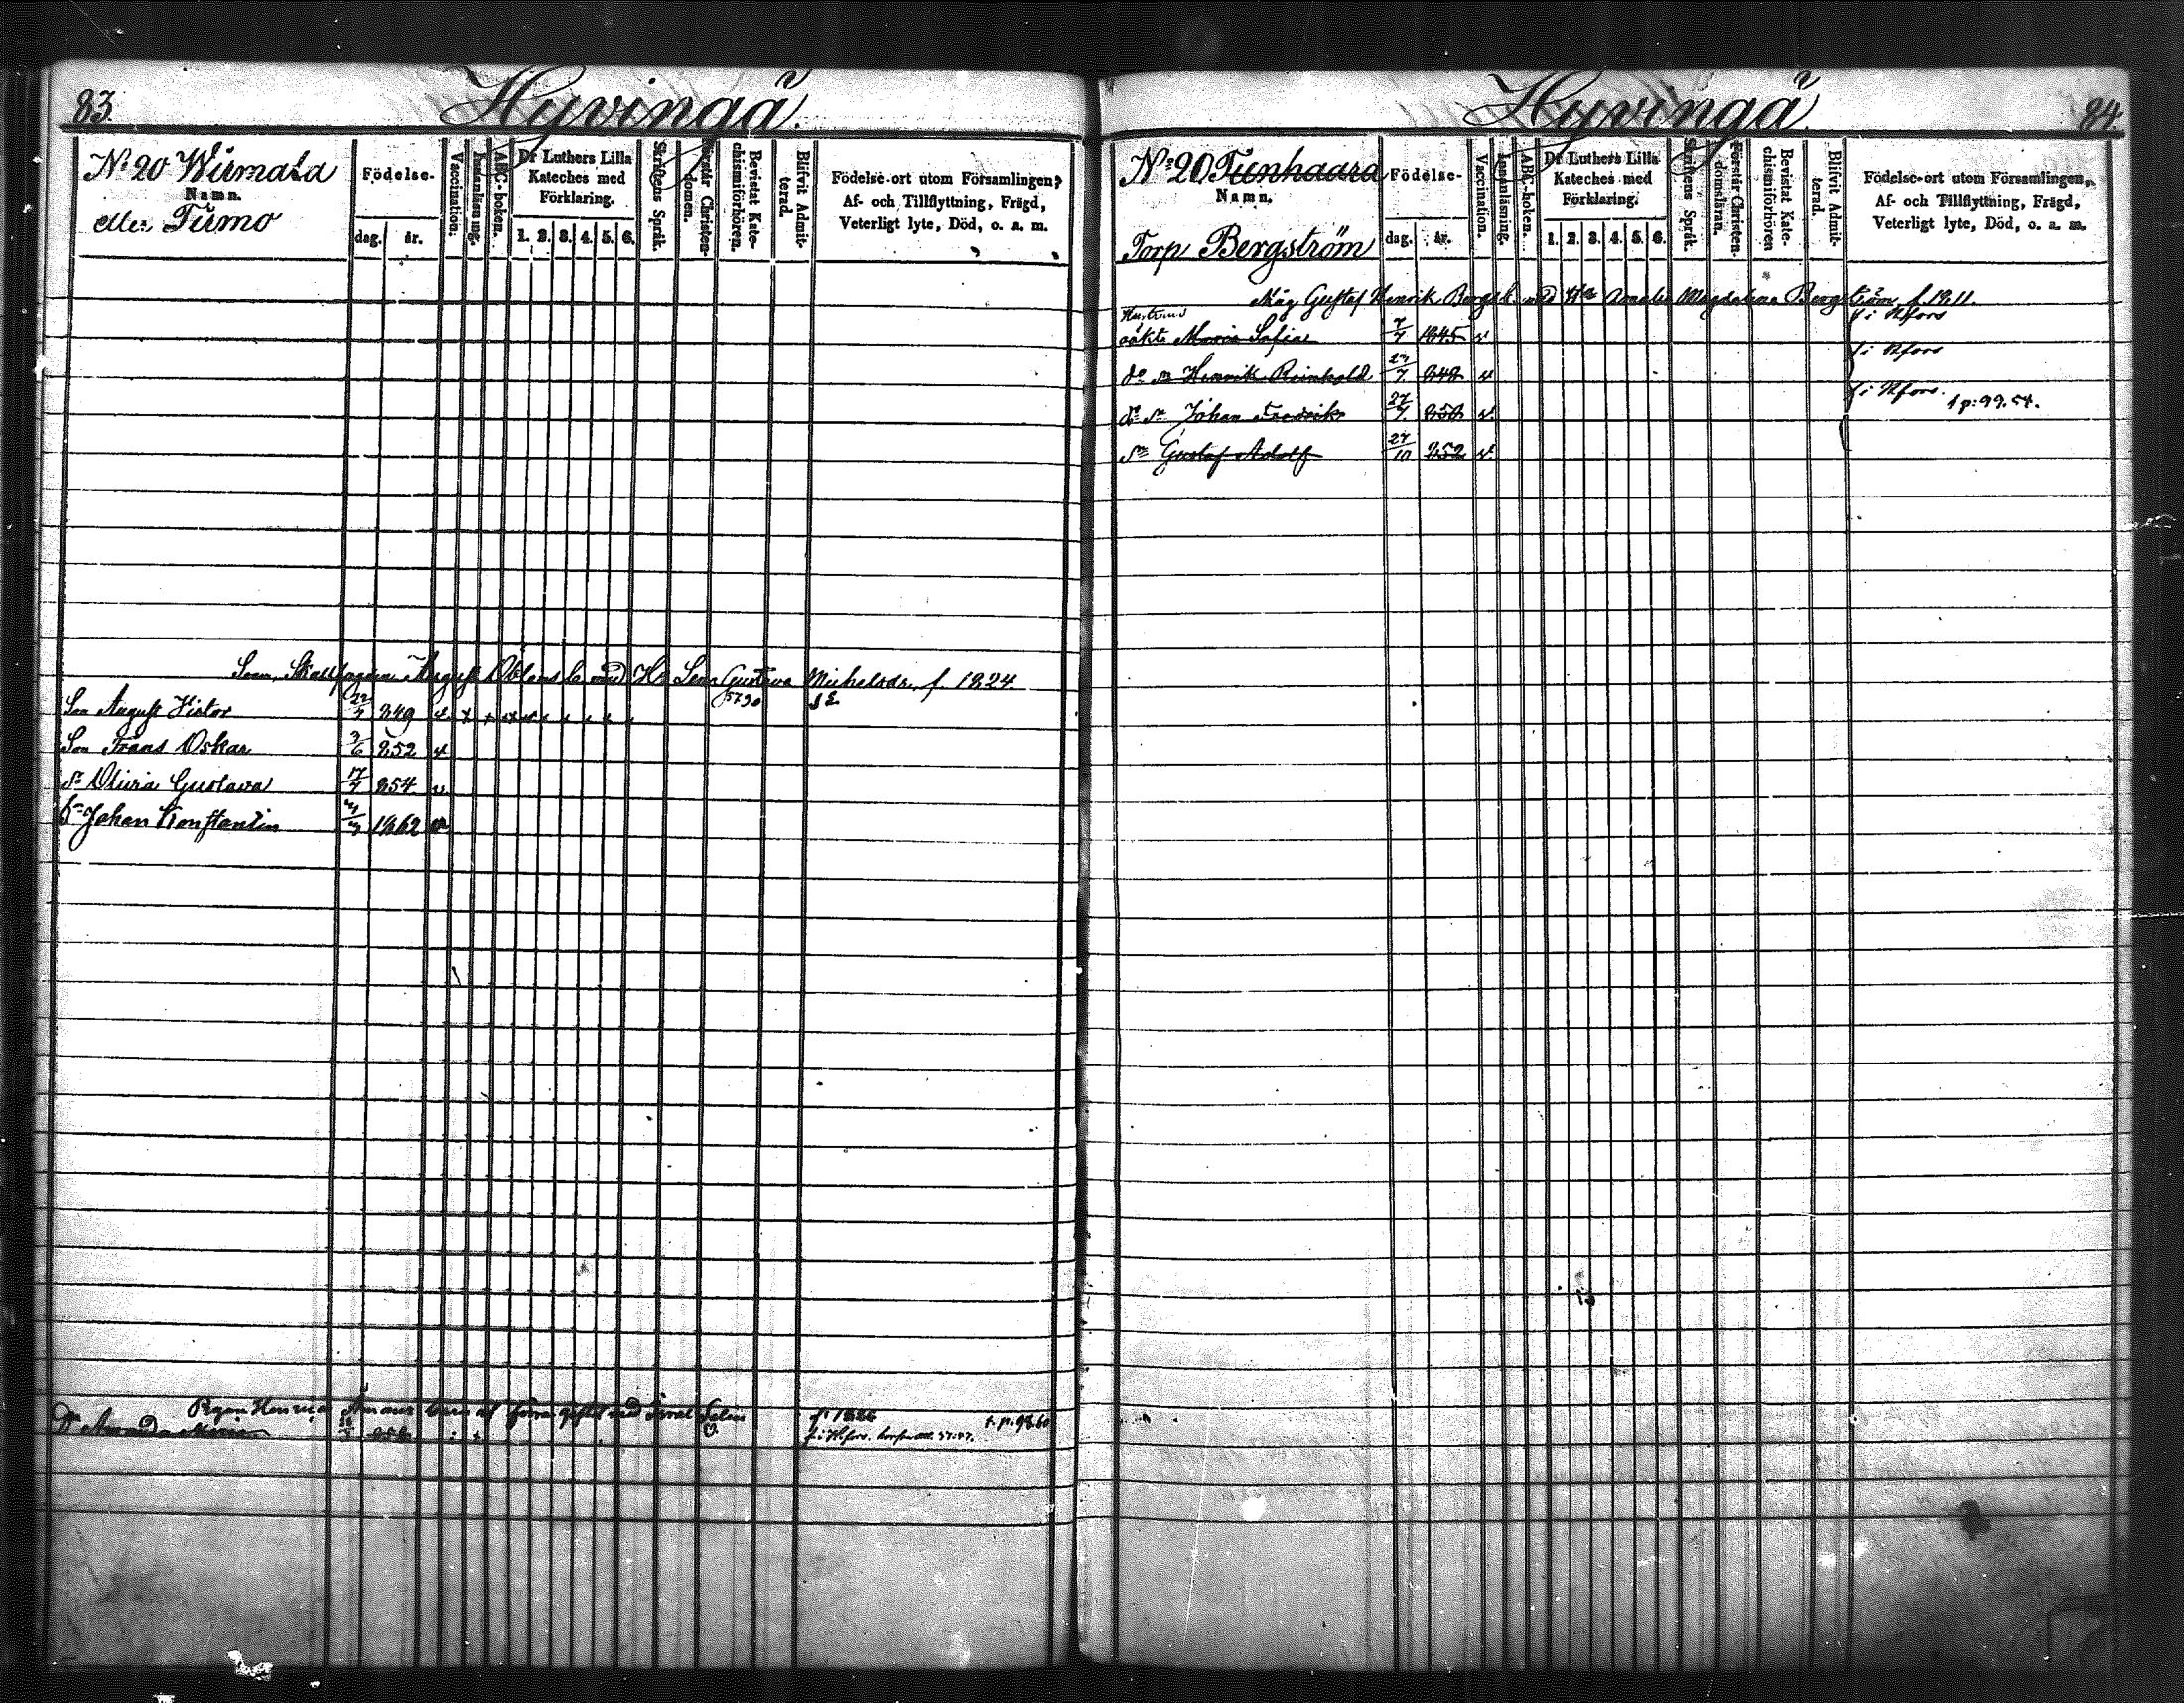 83.
Hyvingå.
N:o 20 Wirmala
Namn.
eller Tirmo
Födelse-
dag. år.
Vaccination.
Innanläsning.
ABC-boken.
Dr Luthers Lilla
Kateches med
Förklaring.
1. 2. 3. 4. 5. 6.
Skriftens Språk.
Förstår Christen-
domen.
Bevistat Kate-
chismiförhören.
Blifvit Admit-
terad.
Födelse-ort utom Församlingen,
Af- och Tillflyttning, Frägd,
Veterligt lyte, Död, o. a. m.
August med H:u Lena Gustava Michelsdr. f. 1824.
Son August 22/4 849
Son Frans Oskar 3/6 852 v
Dr Olivia Gustava 17/7 854 v
Johan Konstantin 1862 v
med
Dr Amanda Maria
f. i Hfors.
84.
Hyvingå.
N:o 20 Tunhaara
Namn.
Torp Bergström
Födelse-
dag. år.
Vaccination.
Innanläsning.
ABC-boken.
Dr Luthers Lilla
Kateches med
Förklaring.
1. 2. 3. 4. 5. 6.
Skriftens Språk.
Förstår Christen-
domsläran.
Bevistat Kate-
chismiförhören
Blifvit Admit-
terad.
Födelse-ort utom Församlingen,
Af- och Tillflyttning, Frägd,
Veterligt lyte, Död, o. a. m.
Måg Gustaf Henrik Bergst. med Amalia Magdalena Bergström f. 1811.
Hustruns
oäkta Maria Sofia 7/7 1845 v f. i Hfors
do sn Henrik Reinhold 848 v f. i Hfors
do sn Johan Fredrik 27/7 850 v f. i Hfors. f. p. 99. 54.
sn Gustaf Adolf 27/10 852 v.